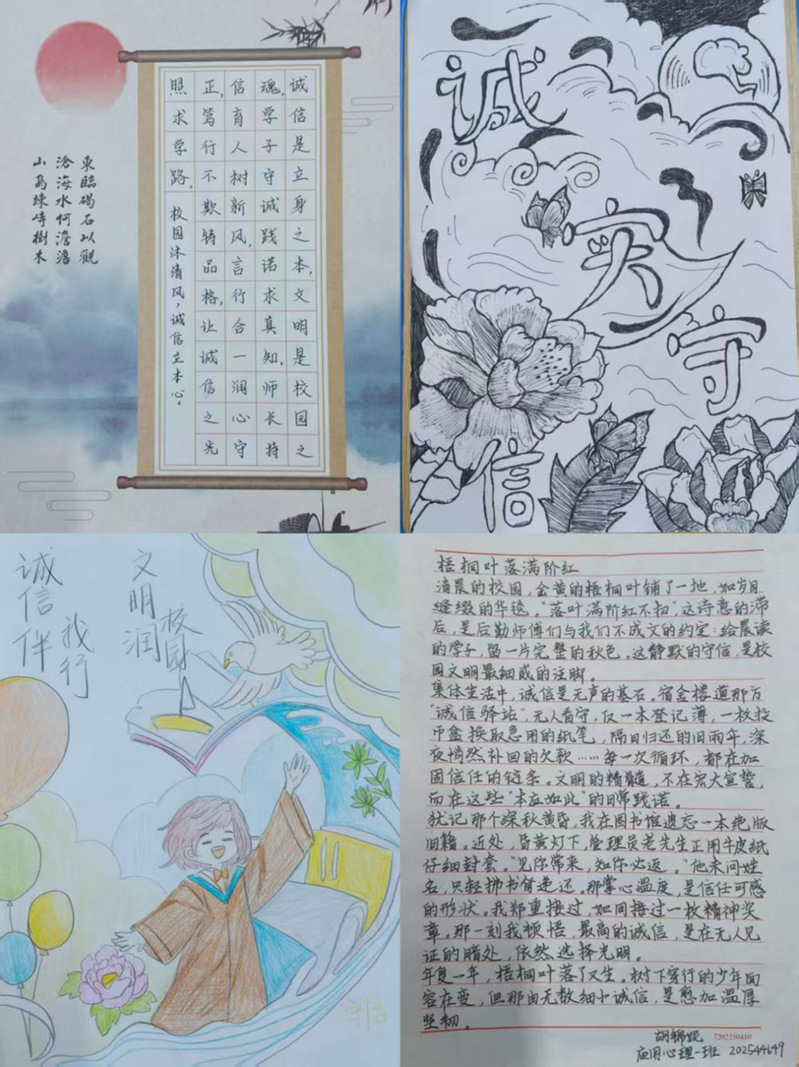 诚信是立身之本,文明是校园之
魂,学子守诚践诺求真知,师长持
信育人树新风,言行合一润心守
正,笃行不欺铸品格,让诚信之光
照求学路。
校园沐清风,诚信立本心。
東臨碣石以觀
滄海水何澹澹
山島竦峙樹木
诚
实
守
信
诚信伴
我行
文明润
校园
守信
梧桐叶落满阶红
清晨的校园,金黄的梧桐叶铺了一地,如岁月
缝缀的华毯。“落叶满阶红不扫”,这诗意的滞
后,是后勤师傅们与我们不成文的约定:给晨读
的学子,留一片完整的秋色。这静默的守信,是校
园文明最细腻的注脚。
集体生活中,诚信是无声的基石。宿舍楼道那方
“诚信驿站”,无人看守,仅一本登记薄,一枚投
币盒 换取急用的纸笔,隔日归还的旧雨伞,深
夜悄然补回的欠款……每一次循环,都在加
固信任的链条。文明的精髓,不在宏大宣誓,
而在这些“本应如此”的日常践诺。
犹记那个深秋黄昏,我在图书馆遗忘一本绝版
旧籍。近处,昏黄灯下,管理员老先生正用牛皮纸
仔细封套。“见你常来,知你必返。”他未问姓
名,只轻拂书脊递还。那掌心温度,是信任可感
的形状。我郑重接过,如同接过一枚精神奖
章。那一刻我顿悟,最高的诚信,是在无人见
证的暗处,依然选择光明。
年复一年,梧桐叶落了又生。树下穿行的少年面
容在变,但那由无数细小诚信,是愈加温厚
坚韧。
7202250410
应用心理一班 202544649